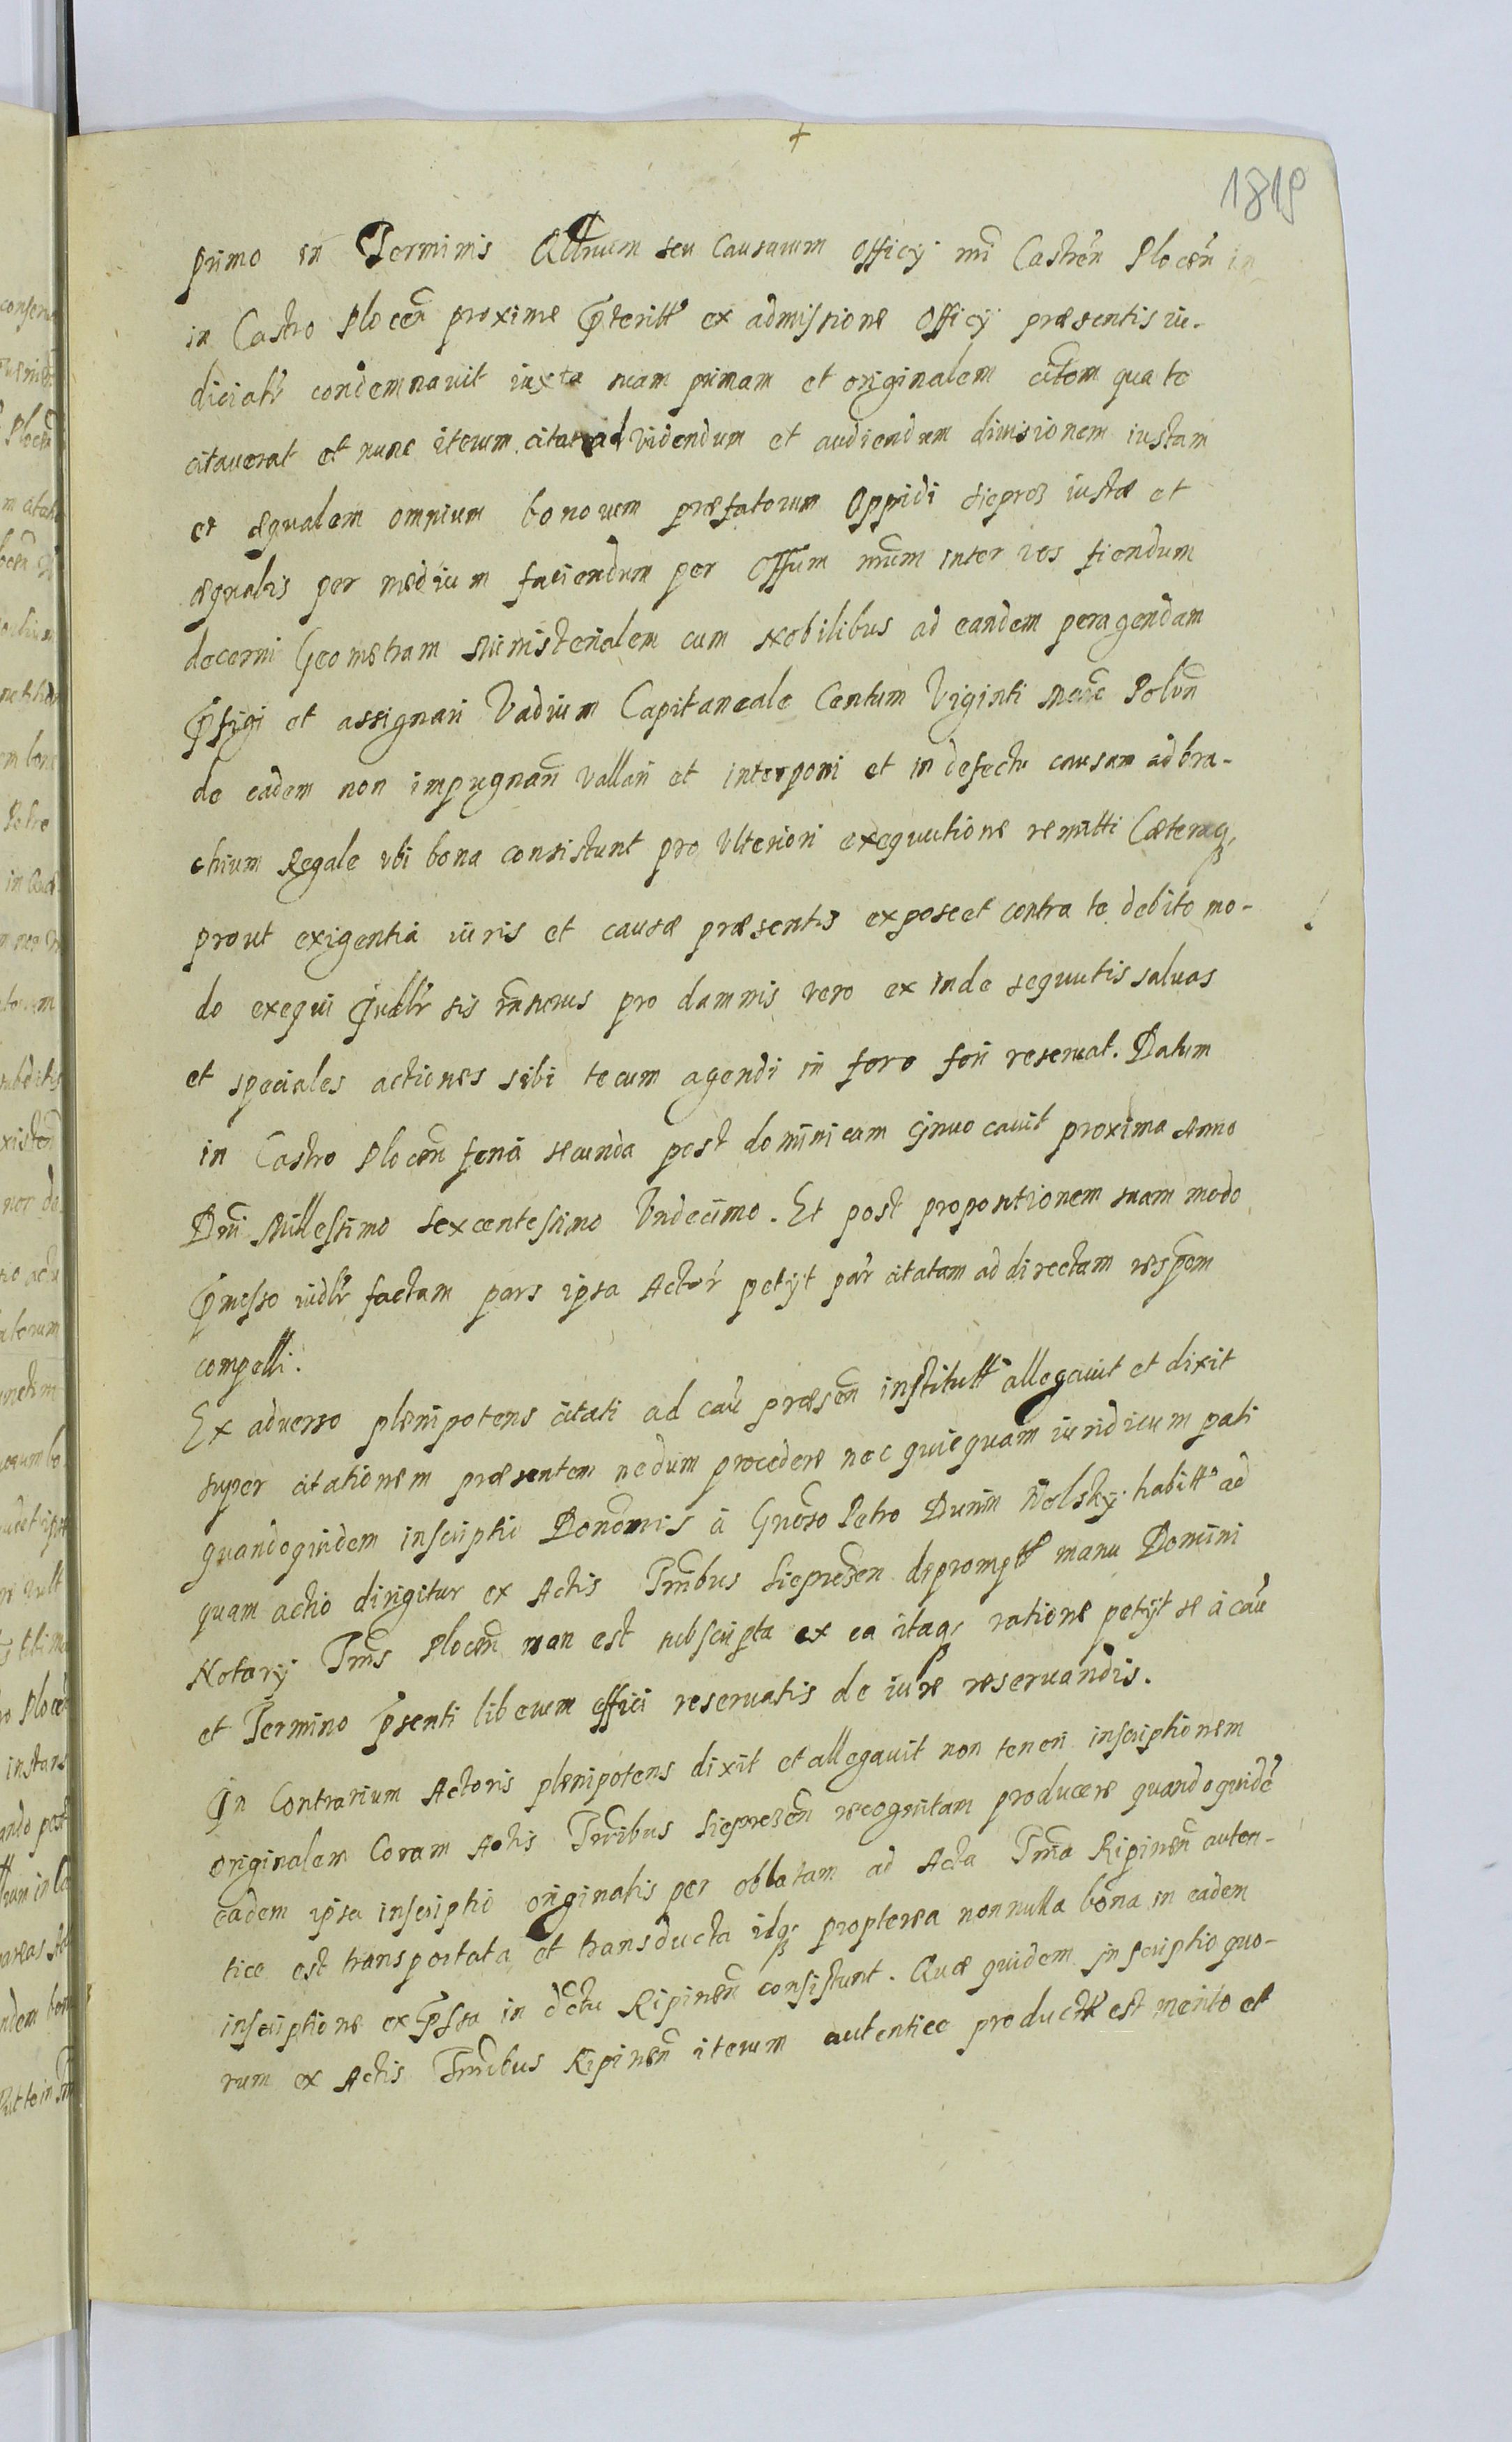 1819
primo in Terminis Actnum seu Causarum Officÿ nri Castren̄ Plocen̄ in
in Castro Plocen̄ proxime p̄teritt ex admissione Officÿ præsentis iu-
diciatr condemnauit iuxta suam primam et originalem citōem qua te
citauerat et nunc iterum citat ad videndum et audiendum diuisionem iustam
et æqualem omnium bonorum præfatorum Oppidi Sieprcz iustæ et
æqualis per medium faciendum per Offum nrum inter vos fiendum
decerni Geometram Ministerialem cum Nobilibus ad eandem peragendam
p̄figi et assignari Vadium Capitaneale Centum Viginti Marc̄ Polon̄
de eadem non impugnan̄ vallari et interponi et in defectu causam ad bra-
chium Regale vbi bona consistunt pro vlteriori exequutione remitti Cæteraq3
prout exigentia iuris et causæ præsentis exposcet contra te debito mo-
do exequi Iudlr sis r̄nsurus pro damnis vero exinde sequutis saluas
et speciales actiones sibi tecum agendi in foro fori reseruat. Datum
in Castro Plocen̄ feria secunda post dominicam Inuocauit proxima Anno
Dn̄i Millesimo Sexcentesimo Vndecimo. Et post propositionem suam modo
p̄misso iudlr factam pars ipsa Actor petÿt par citatam ad directam respōem
compelli.
Ex aduerso plenipotens citati ad cau præsen̄ institutt allegauit et dixit
super citationem præsentem nedum procedere nec quicquam iuridicum pati
quandoquidem inscriptio Donōnis à Gn̄oso Petro Dunin Wolskÿ habitt ad
quam actio dirigitur ex Actis Trr̄ibus Sieprczen depromptt manu Domini
Notarÿ Trris Plocen̄ non est subscripta ex ea itaq3 ratione petÿt se à cau
et Termino p̄senti liberum effici reseruatis de iure reseruandis.
In Contrarium Actoris plenipotens dixit et allegauit non teneri inscriptionem
originalem Coram Actis Trr̄ibus Sieprczen̄ recognitam producere quandoquidē
eadem ipsa inscriptio originalis per oblatam ad Acta Trria Ripinen̄ auten-
tice est transportata et transducta idq3 propterea nonnulla bona in eadem
inscriptione exp̄ssa in dc̄tu Ripinen̄ consistunt. Quæ quidem inscriptio quo-
rum ex Actis Trr̄ibus Ripinen̄ iterum autentice productt est merito et